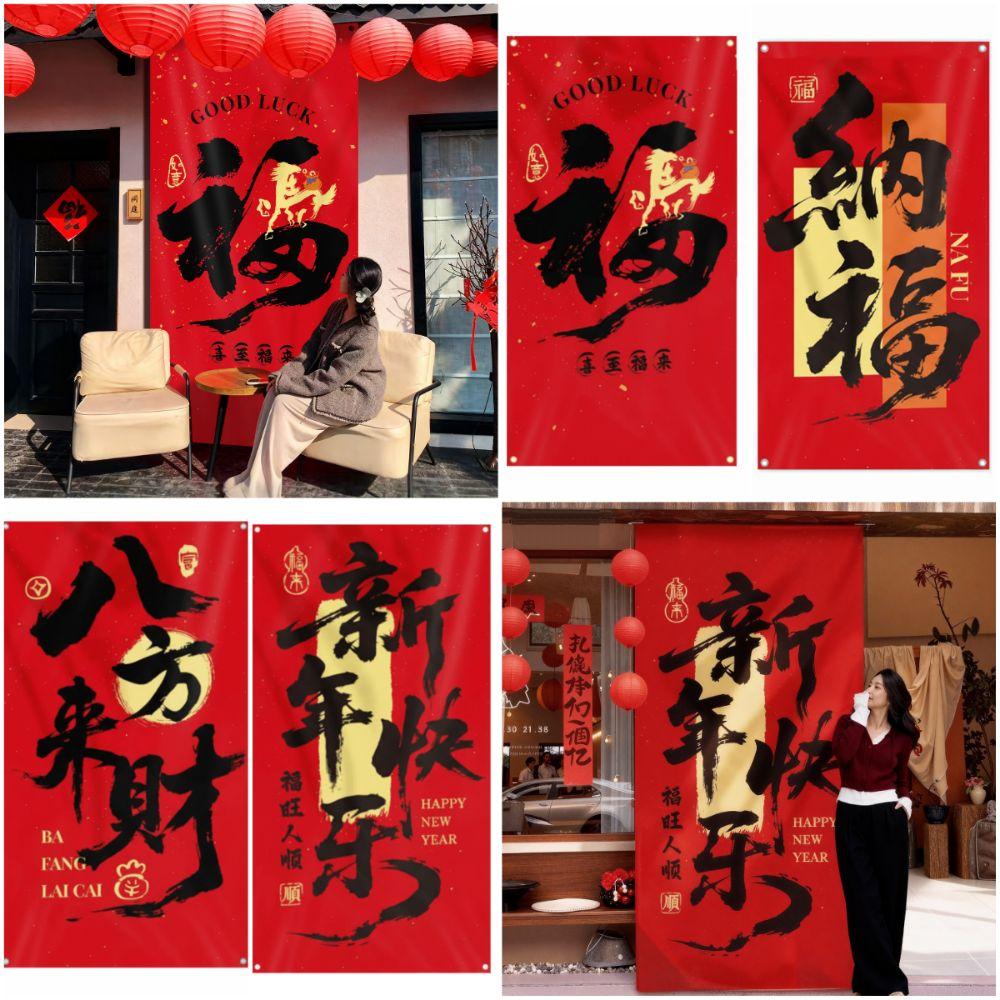 GOOD LUCK
如意
福
馬
喜至福来
福
GOOD LUCK
如意
福
馬
喜至福来
福
納福
NA FU
八方来财
富
BA
FANG
LAI CAI
福来
新年快乐
福旺人顺
HAPPY
NEW
YEAR
順
福来
新年快乐
福旺人顺
HAPPY
NEW
YEAR
順
30 21.38